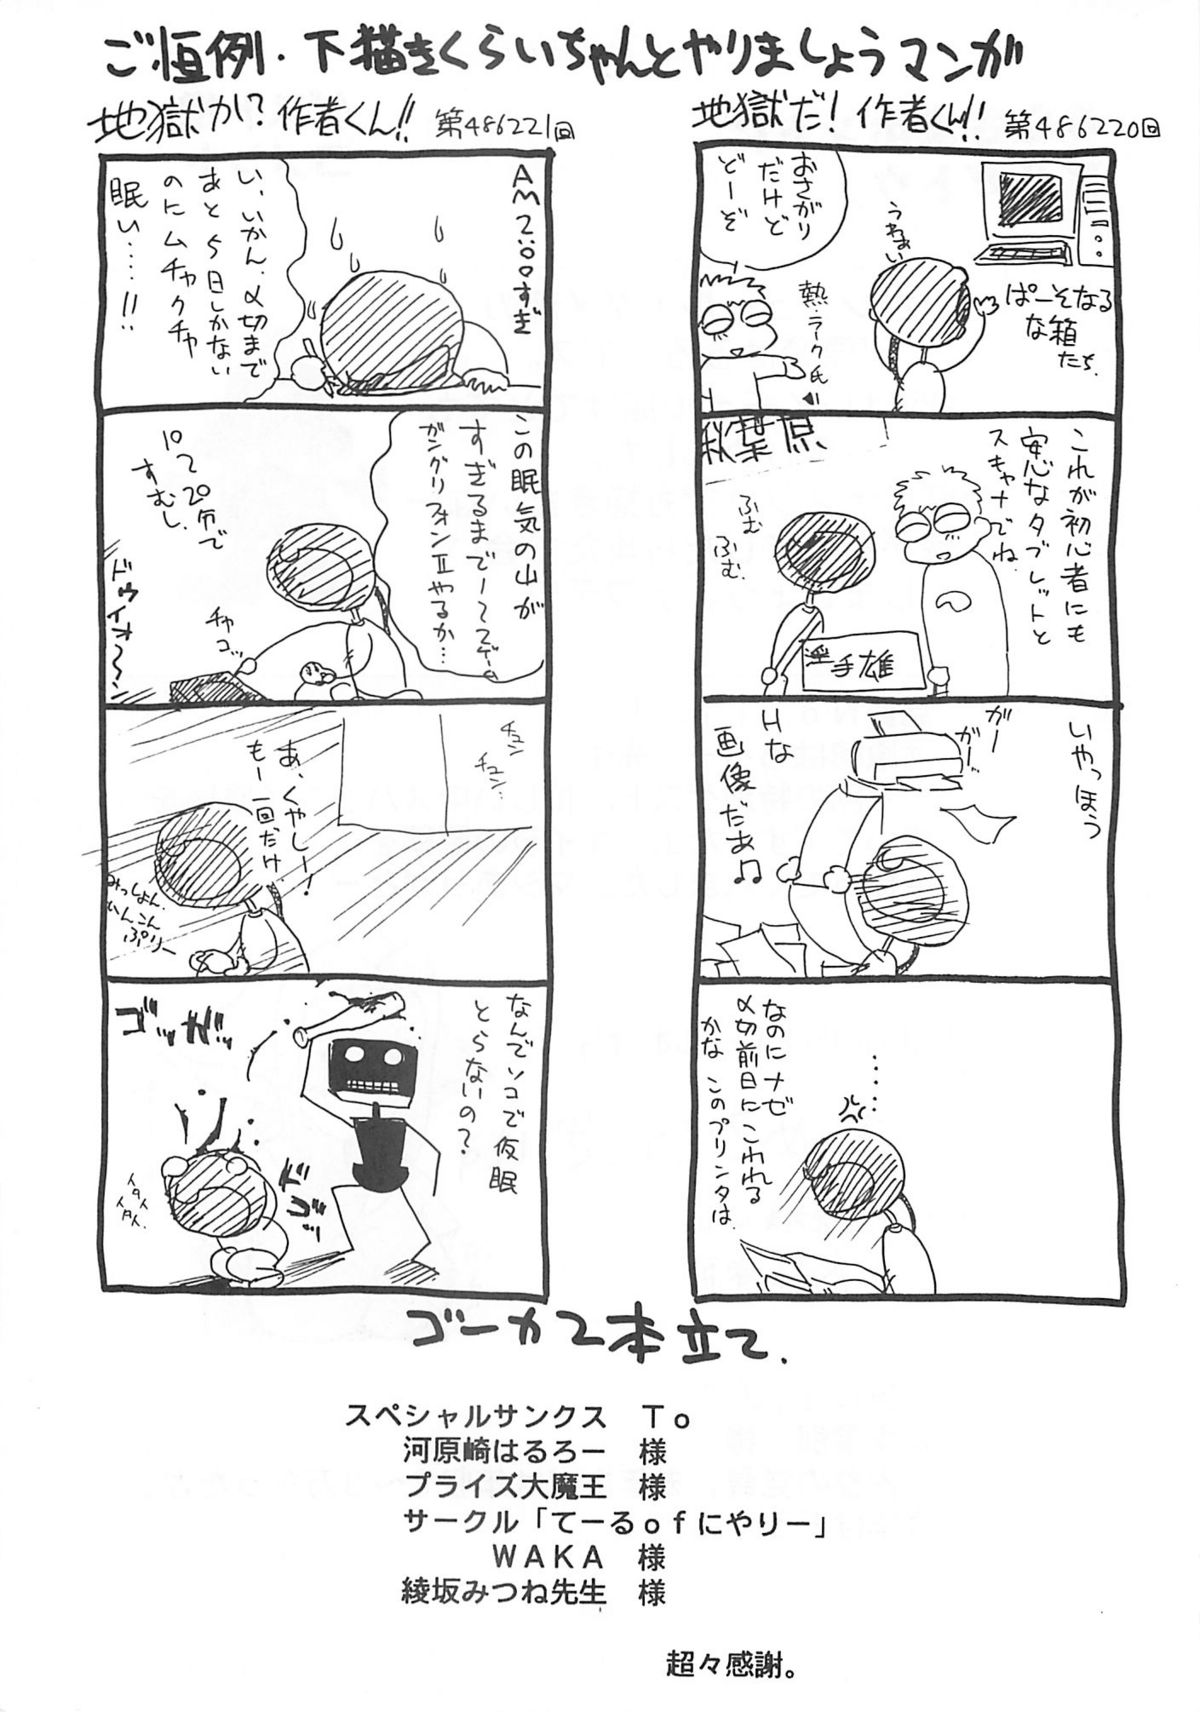 ご恒例・下描きくらいちゃんとやりましょうマンガ
地獄だ！作者くん!! 第486220回
おさがり
だけど
どーぞ
うわぁい
ぱーそなる
な箱
たち.
熱・ラーク氏
秋葉原
これが初心者にも
安心なタブレットと
スキャナでね。
ふむ
ふむ.
いやっほう
ガー
ガー
Hな
画像だあ♫
なのにナゼ
〆切前日にこわれる
かな このプリンタは.
地獄か？作者くん!! 第486221回
AM2:00すぎ
い、いかん、〆切まで
あと5日しかない
のにムチャクチャ
眠い……!!
この眠気の山が
すぎるまで
ガングリフォンⅡやるか…
10〜20分で
すむし.
チャコッ
ドゥイオ〜〜ン
チュン
チュン…
あ、くやしー！
もー一回だけ
みっしょん.
いんこん
ぷりー
なんでソコで仮眠
とらないの？
ゴッガッ
ドゴッ
イタイ
イタイ.
ゴーカ2本立て.
スペシャルサンクス　Ｔｏ
河原崎はるろー　様
プライズ大魔王　様
サークル「てーるｏｆにやりー」
ＷＡＫＡ　様
綾坂みつね先生　様
超々感謝。